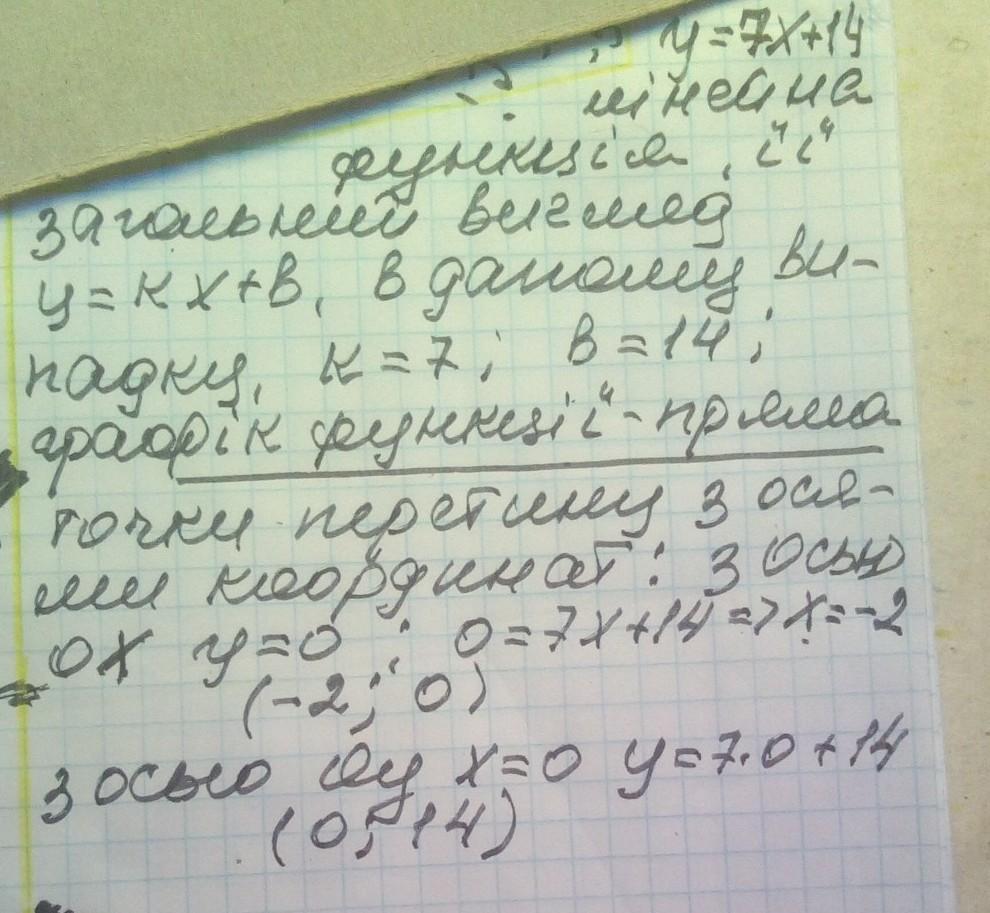 y=7x+14
лінейна
функція, її
загальний вигляд
y=кx+в, в даному ви-
падку, к=7; в=14;
графік функції-пряма
точки перетину з ося-
ми координат: з осью
ox y=0; 0=7x+14=>x=-2
(-2; 0)
з осью oy x=0 y=7.0+14
(0; 14)